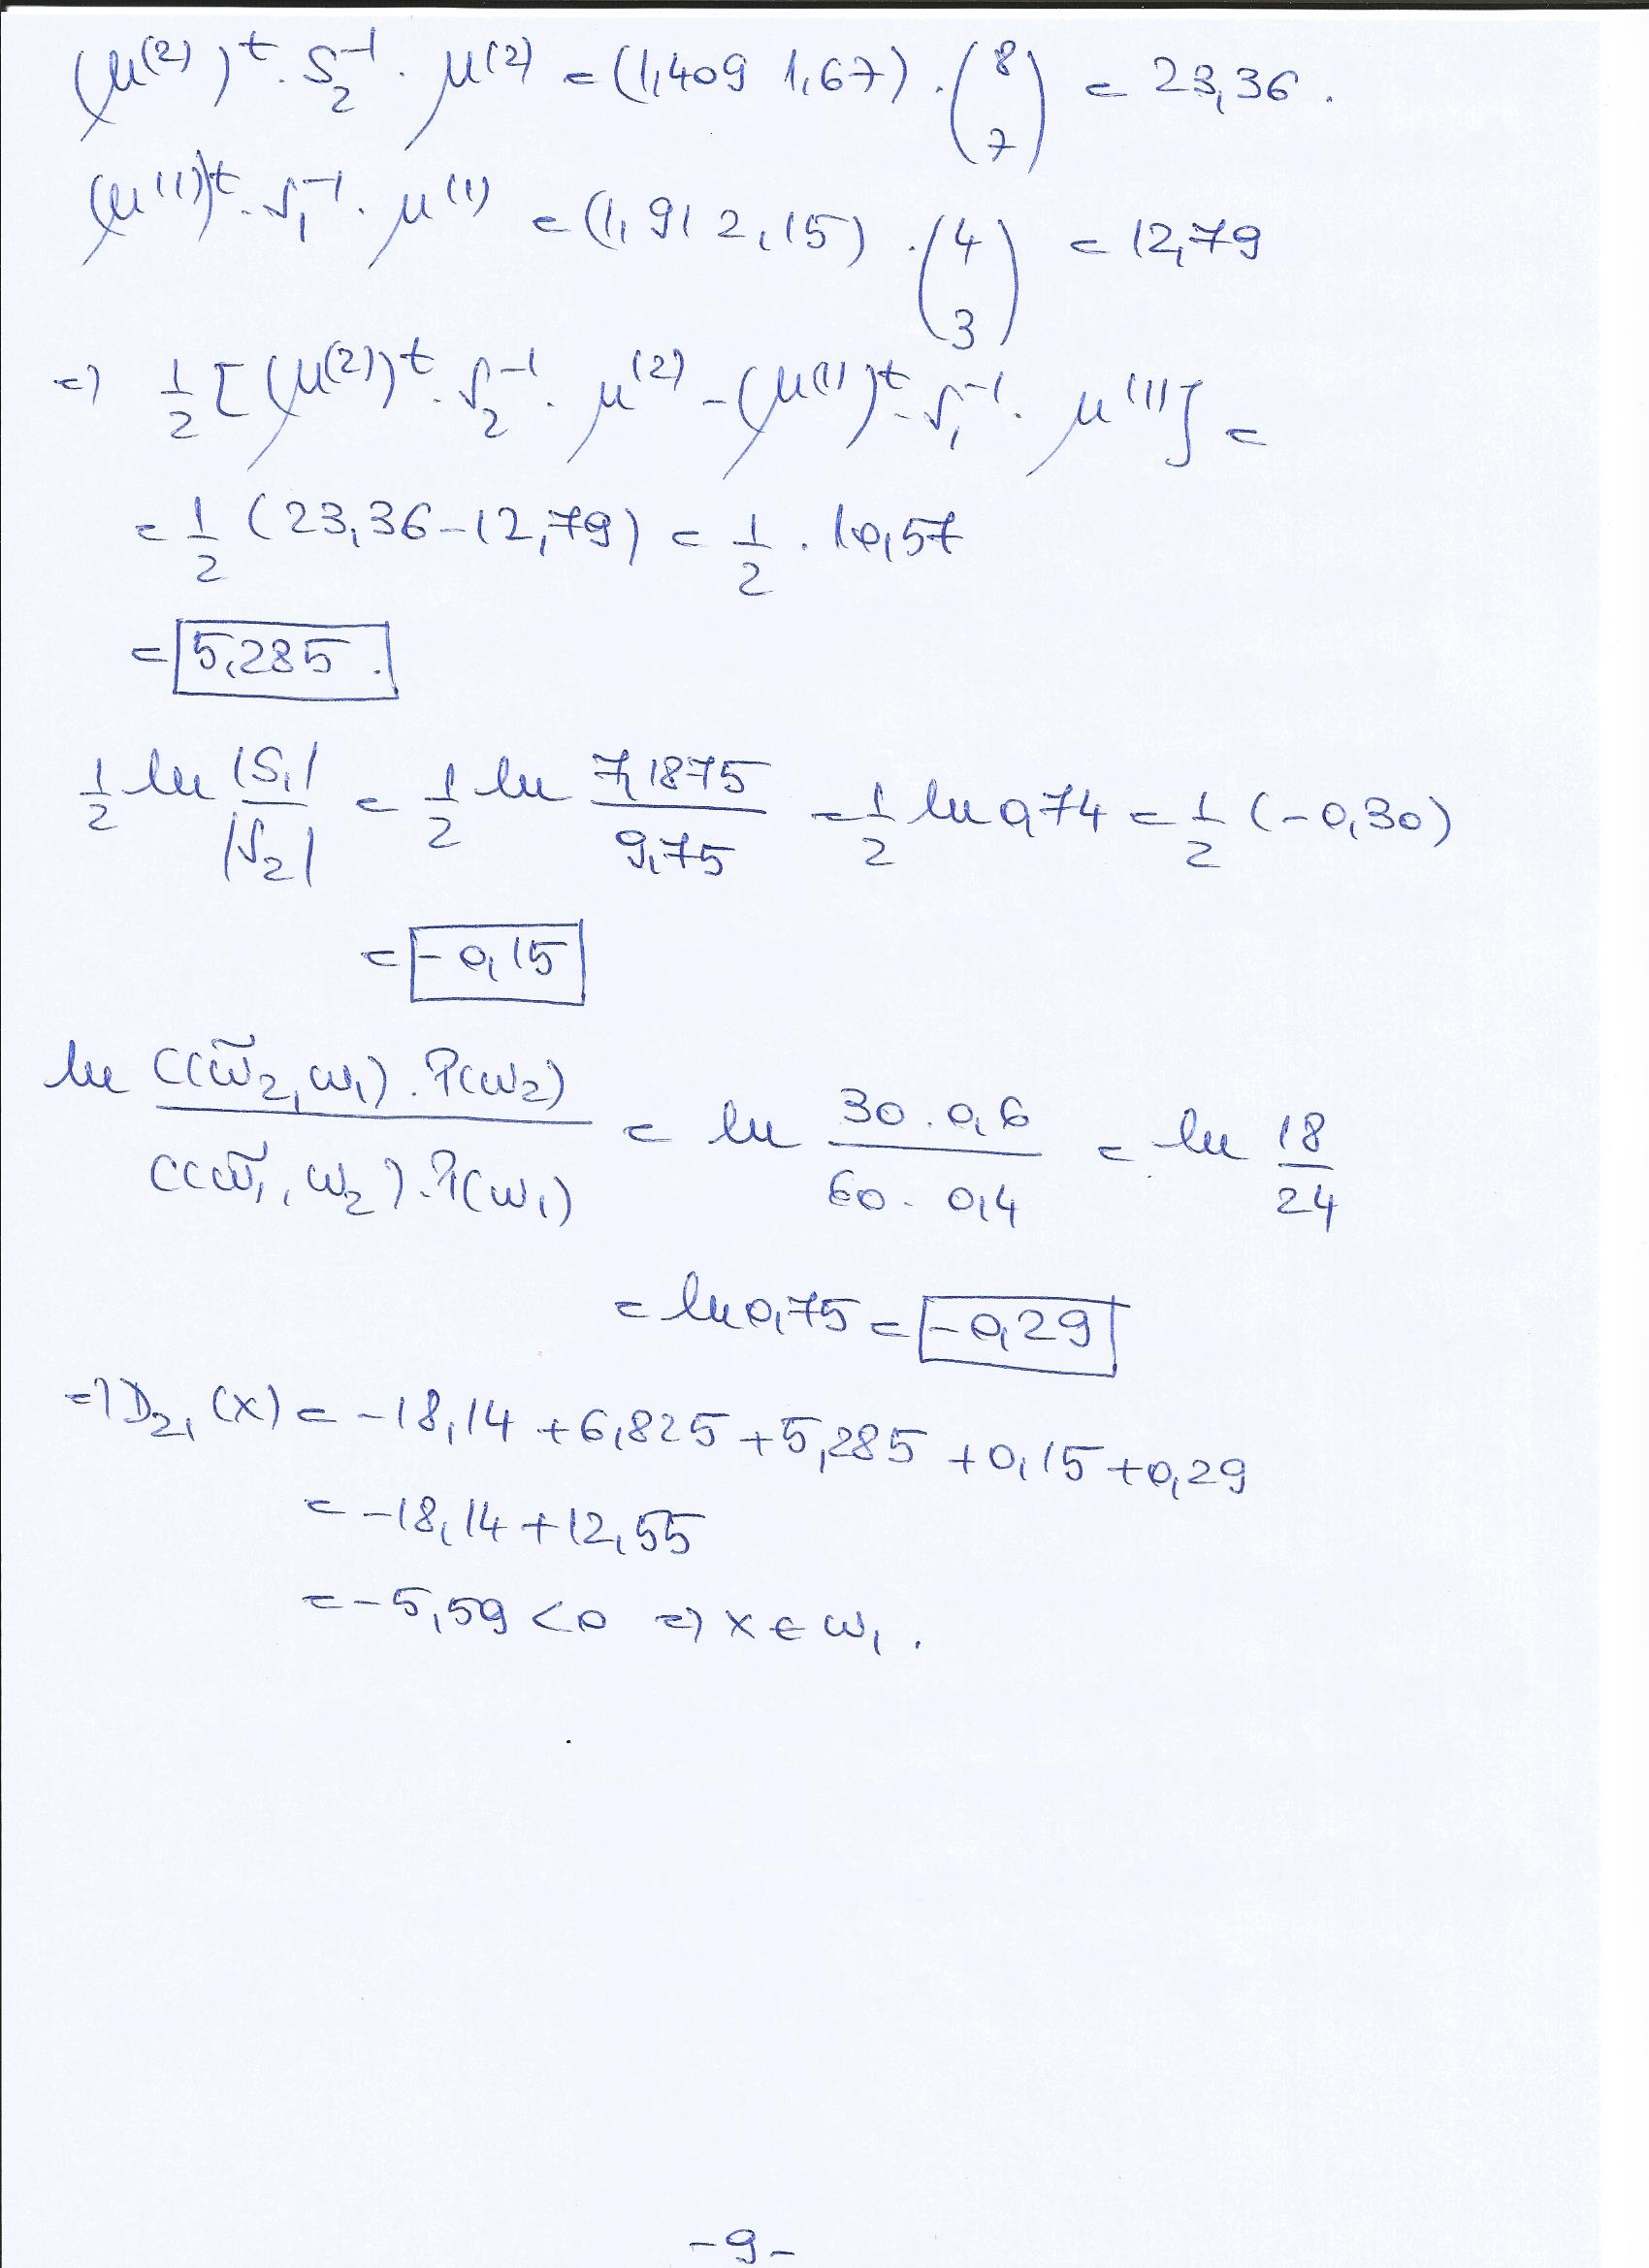 (μ⁽²⁾)ᵗ · S₂⁻¹ · μ⁽²⁾ = (1,409 1,67) · (8 7) = 23,36 .
(μ⁽¹⁾)ᵗ · S₁⁻¹ · μ⁽¹⁾ = (1,91 2,15) · (4 3) = 12,79
⇒ 1/2 [(μ⁽²⁾)ᵗ · S₂⁻¹ · μ⁽²⁾ - (μ⁽¹⁾)ᵗ · S₁⁻¹ · μ⁽¹⁾] =
= 1/2 (23,36 - 12,79) = 1/2 · 10,57
= 5,285 .
1/2 ln |S₁|/|S₂| = 1/2 ln 7,1875/9,75 = 1/2 ln 0,74 = 1/2 (-0,30)
= -0,15
ln C(ω̃₂, ω₁) · P(ω₂) / C(ω̃₁, ω₂) · P(ω₁) = ln 30 · 0,6 / 60 · 0,4 = ln 18/24
= ln 0,75 = -0,29
⇒ D₂₁ (x) = -18,14 + 6,825 + 5,285 + 0,15 + 0,29
= -18,14 + 12,55
= -5,59 < 0 ⇒ x ∈ ω₁ .
- 9 -